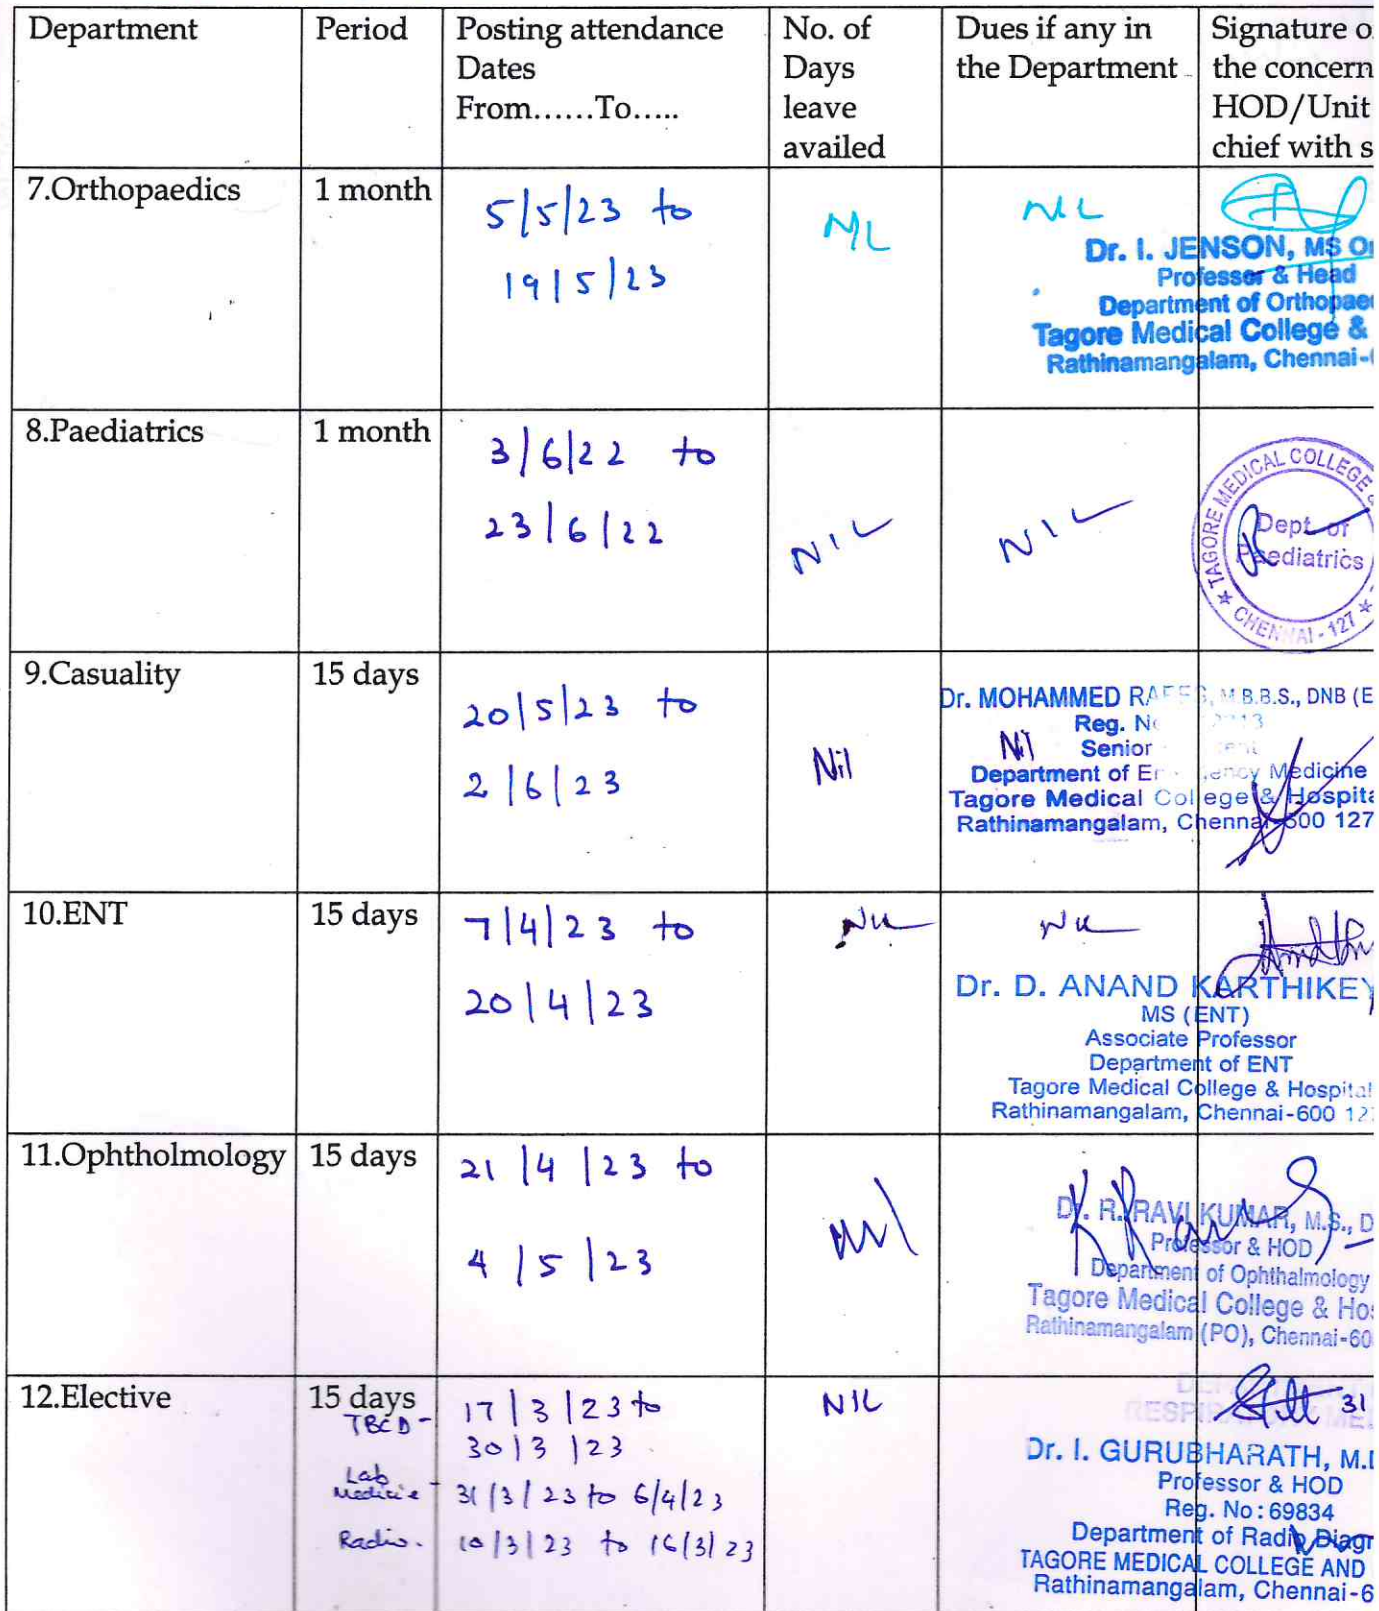 Department Period Posting attendance No. of Dues if any in Signature o
Dates Days the Department the concern
From......To..... leave HOD/Unit
availed chief with s
7.Orthopaedics 1 month 5/5/23 to NIL NIL
19/5/23
Dr. I. JENSON, MS O
Professor & Head
Department of Orthopae
Tagore Medical College &
Rathinamangalam, Chennai-
8.Paediatrics 1 month 3/6/22 to
23/6/22 NIL NIL
TAGORE MEDICAL COLLEGE &
Dept. of
Paediatrics
CHENNAI - 127
9.Casuality 15 days 20/5/23 to
2/6/23 Nil Nil
Dr. MOHAMMED M.B.B.S., DNB (E
Reg. No
Senior
Department of Emergency Medicine
Tagore Medical College & Hospita
Rathinamangalam, Chennai-600 127
10.ENT 15 days 7/4/23 to Nil Nil
20/4/23
Dr. D. ANAND KARTHIKEY
MS (ENT)
Associate Professor
Department of ENT
Tagore Medical College & Hospital
Rathinamangalam, Chennai-600 12
11.Ophtholmology 15 days 21/4/23 to
4/5/23 nil
Dr. R. RAVI KUMAR, M.S., D
Professor & HOD
Department of Ophthalmology
Tagore Medical College & Hos
Rathinamangalam (PO), Chennai-60
12.Elective 15 days 17/3/23 to NIL 31
TBCD - 30/3/23
Lab
Medicie - 31/3/23 to 6/4/23
Radio. 10/3/23 to 16/3/23
Dr. I. GURUBHARATH, M.
Professor & HOD
Reg. No: 69834
Department of Radio Diagn
TAGORE MEDICAL COLLEGE AND
Rathinamangalam, Chennai-6